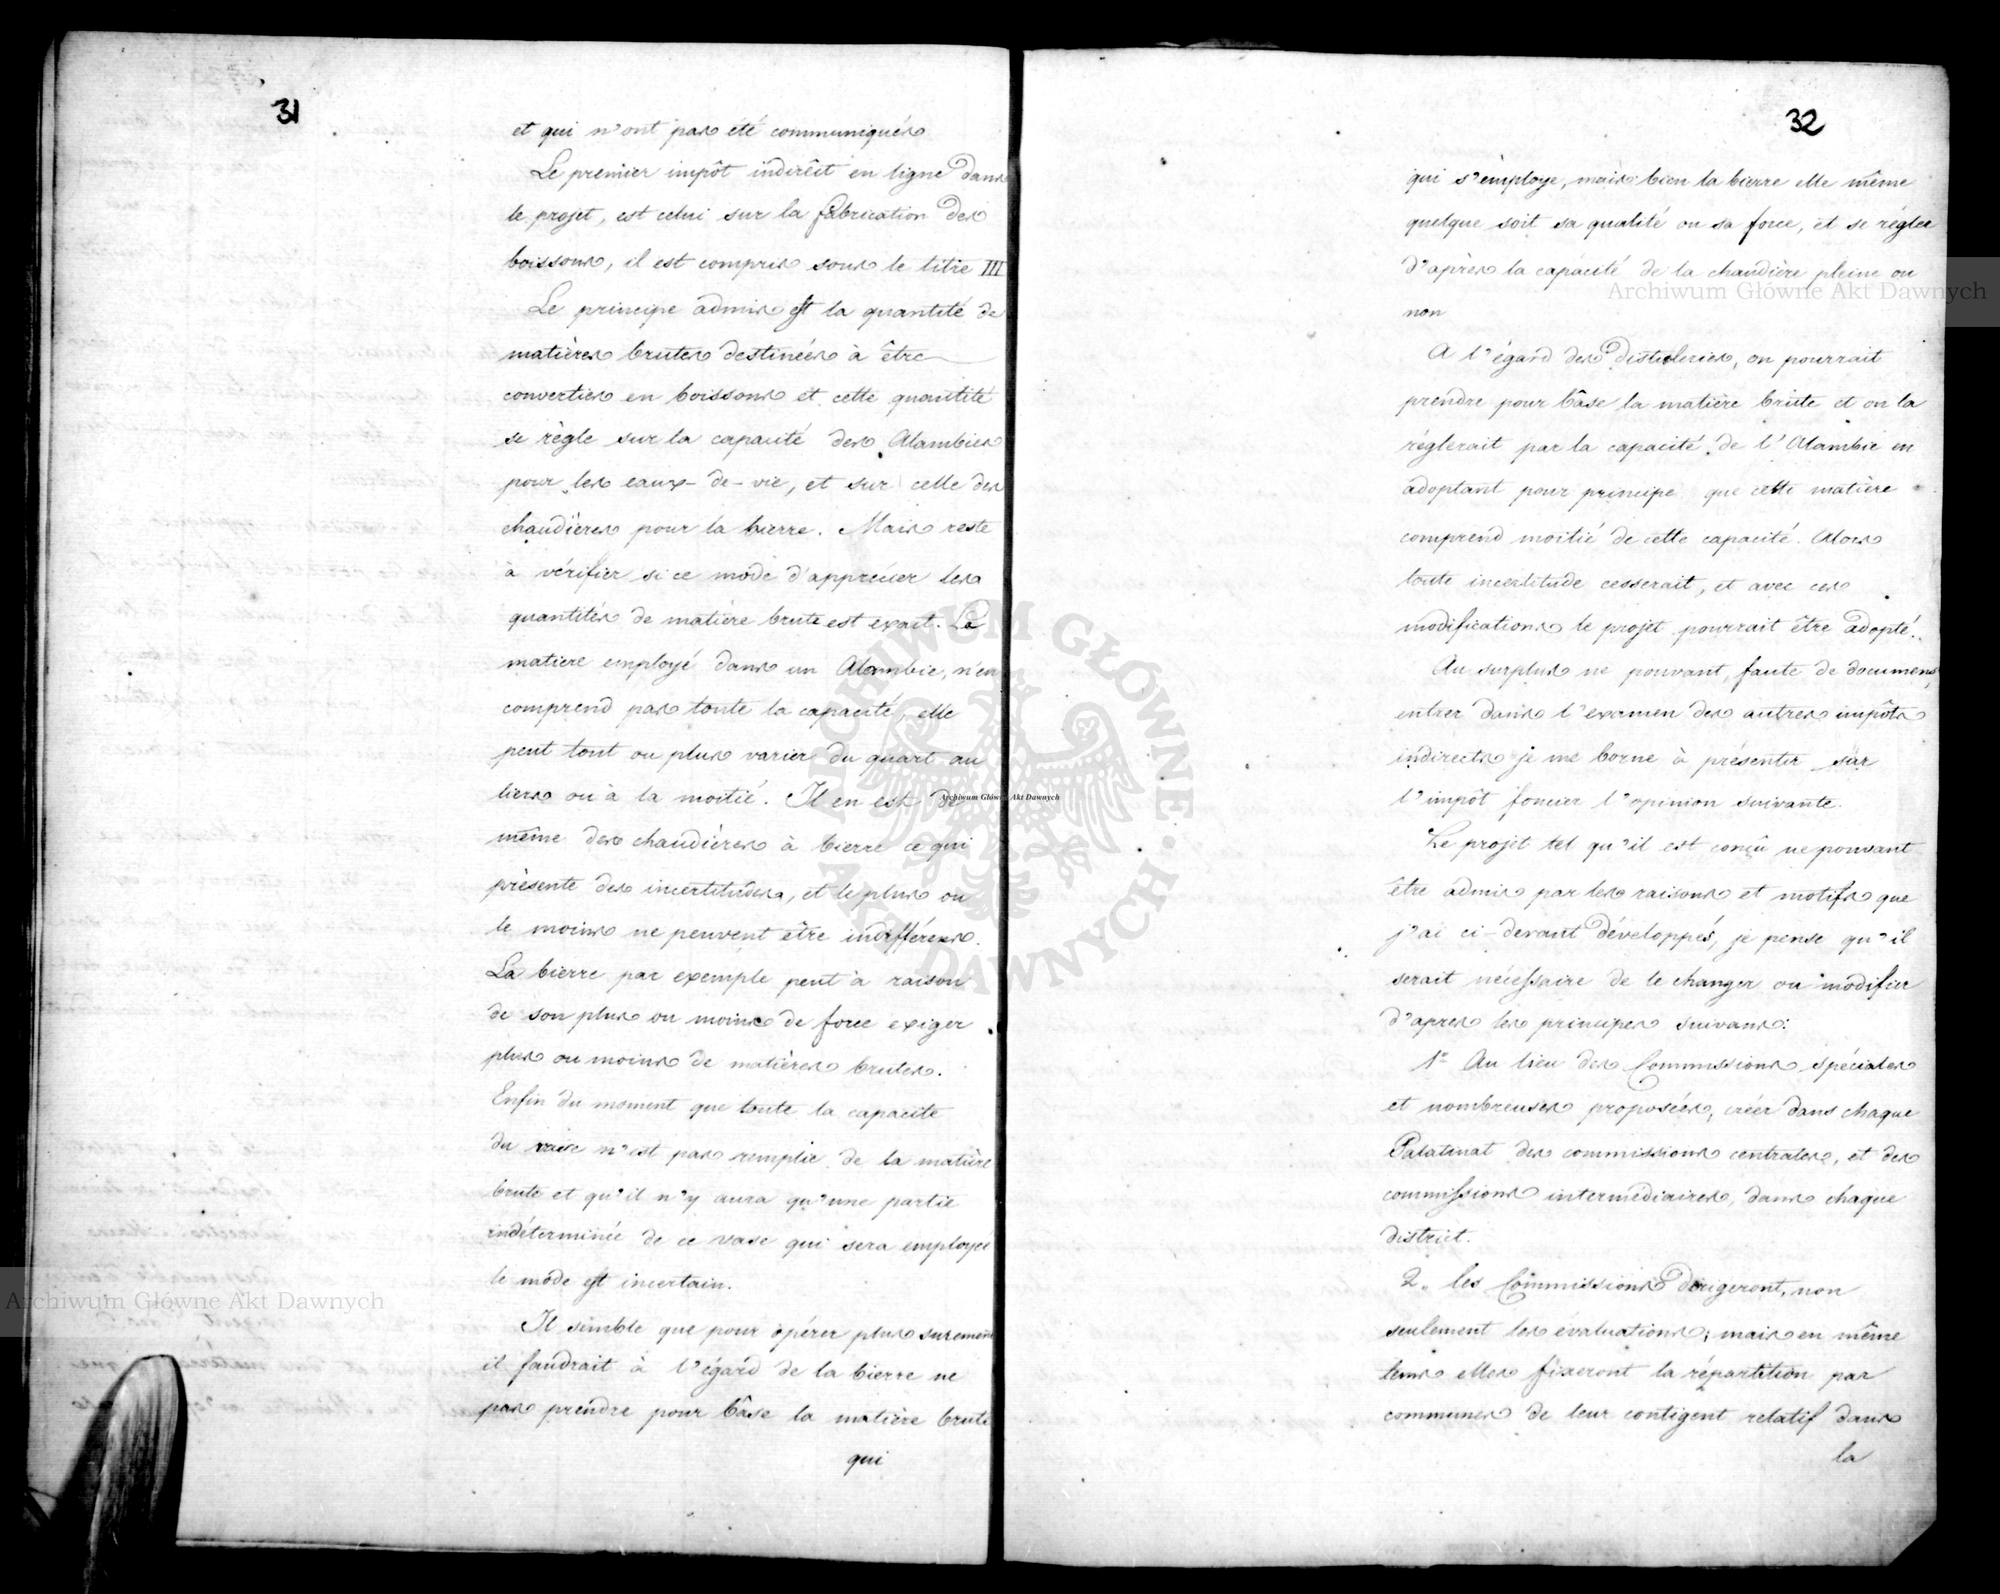 31
et qui n'ont pas été communiqués
Le premier impôt indirêit en ligne dans
le projet, est celui sur la fabrication des
boissons, il est compris sous le titre III
Le principe admis est la quantité de
matières brutes destinées à être
converties en boissons et cette quantité
se règle sur la capacité des Alambics
pour les eaux-de-vie, et sur celle des
chaudières pour la bierre. Mais reste
à vérifier si ce mode d'apprécier les
quantités de matière brute est exact. La
matiere employé dans un Alambic, n'en
comprend pas toute la capacité, elle
peut tout ou plus varier du quart au
tiers ou à la moitié. Il en est de
même des chaudières à bierre ce qui
présente des incertitudes, et le plus ou
le moins ne peuvent être indifférens.
La bierre par exemple peut à raison
de son plus ou moins de force exiger
plus ou moins de matières brutes.
Enfin du moment que toute la capacité
du vase n'est pas remplie de la matière
brute et qu'il n'y aura qu'une partie
indéterminée de ce vase qui sera employé
le mode est incertain.
Il semble que pour opérer plus surement
il faudrait à l'égard de la bierre ne
pas prendre pour bâse la matière brute
qui
32
qui s'employe, mais bien la bierre elle même
quelque soit sa qualité ou sa force, et se régler
d'après la capacité de la chaudière pleine ou
non
A l'égard des Distileries, on pourrait
prendre pour bâse la matière brute et on la
réglerait par la capacité de l'Alambic en
adoptant pour principe que cette matière
comprend moitié de cette capacité. Alors
toute incertitude cesserait, et avec ces
modifications le projet pourrait être adopté.
Au surplus ne pouvant, faute de documens,
entrer dans l'examen des autres impôts
indirects je me borne à présenter sur
l'impôt foncier l'opinion suivante.
Le projet tel qu'il est conçu ne pouvant
être admis par les raisons et motifs que
j'ai ci-devant développés, je pense qu'il
serait nécessaire de le changer ou modifier
d'apres les principes suivans:
1º Au lieu des Commissions spéciales
et nombreuses proposées, créer dans chaque
Palatinat des commissions centrales, et des
commissions intermédiaires, dans chaque
district.
2. les Commissions dirigeront, non
seulement les évaluations; mais en même
tems elles fixeront la répartition par
communes de leur contigent relatif dans
la
Archiwum Główne Akt Dawnych
Archiwum Główne Akt Dawnych
Archiwum Główne Akt Dawnych
ARCHIWUM GŁÓWNE AKT DAWNYCH